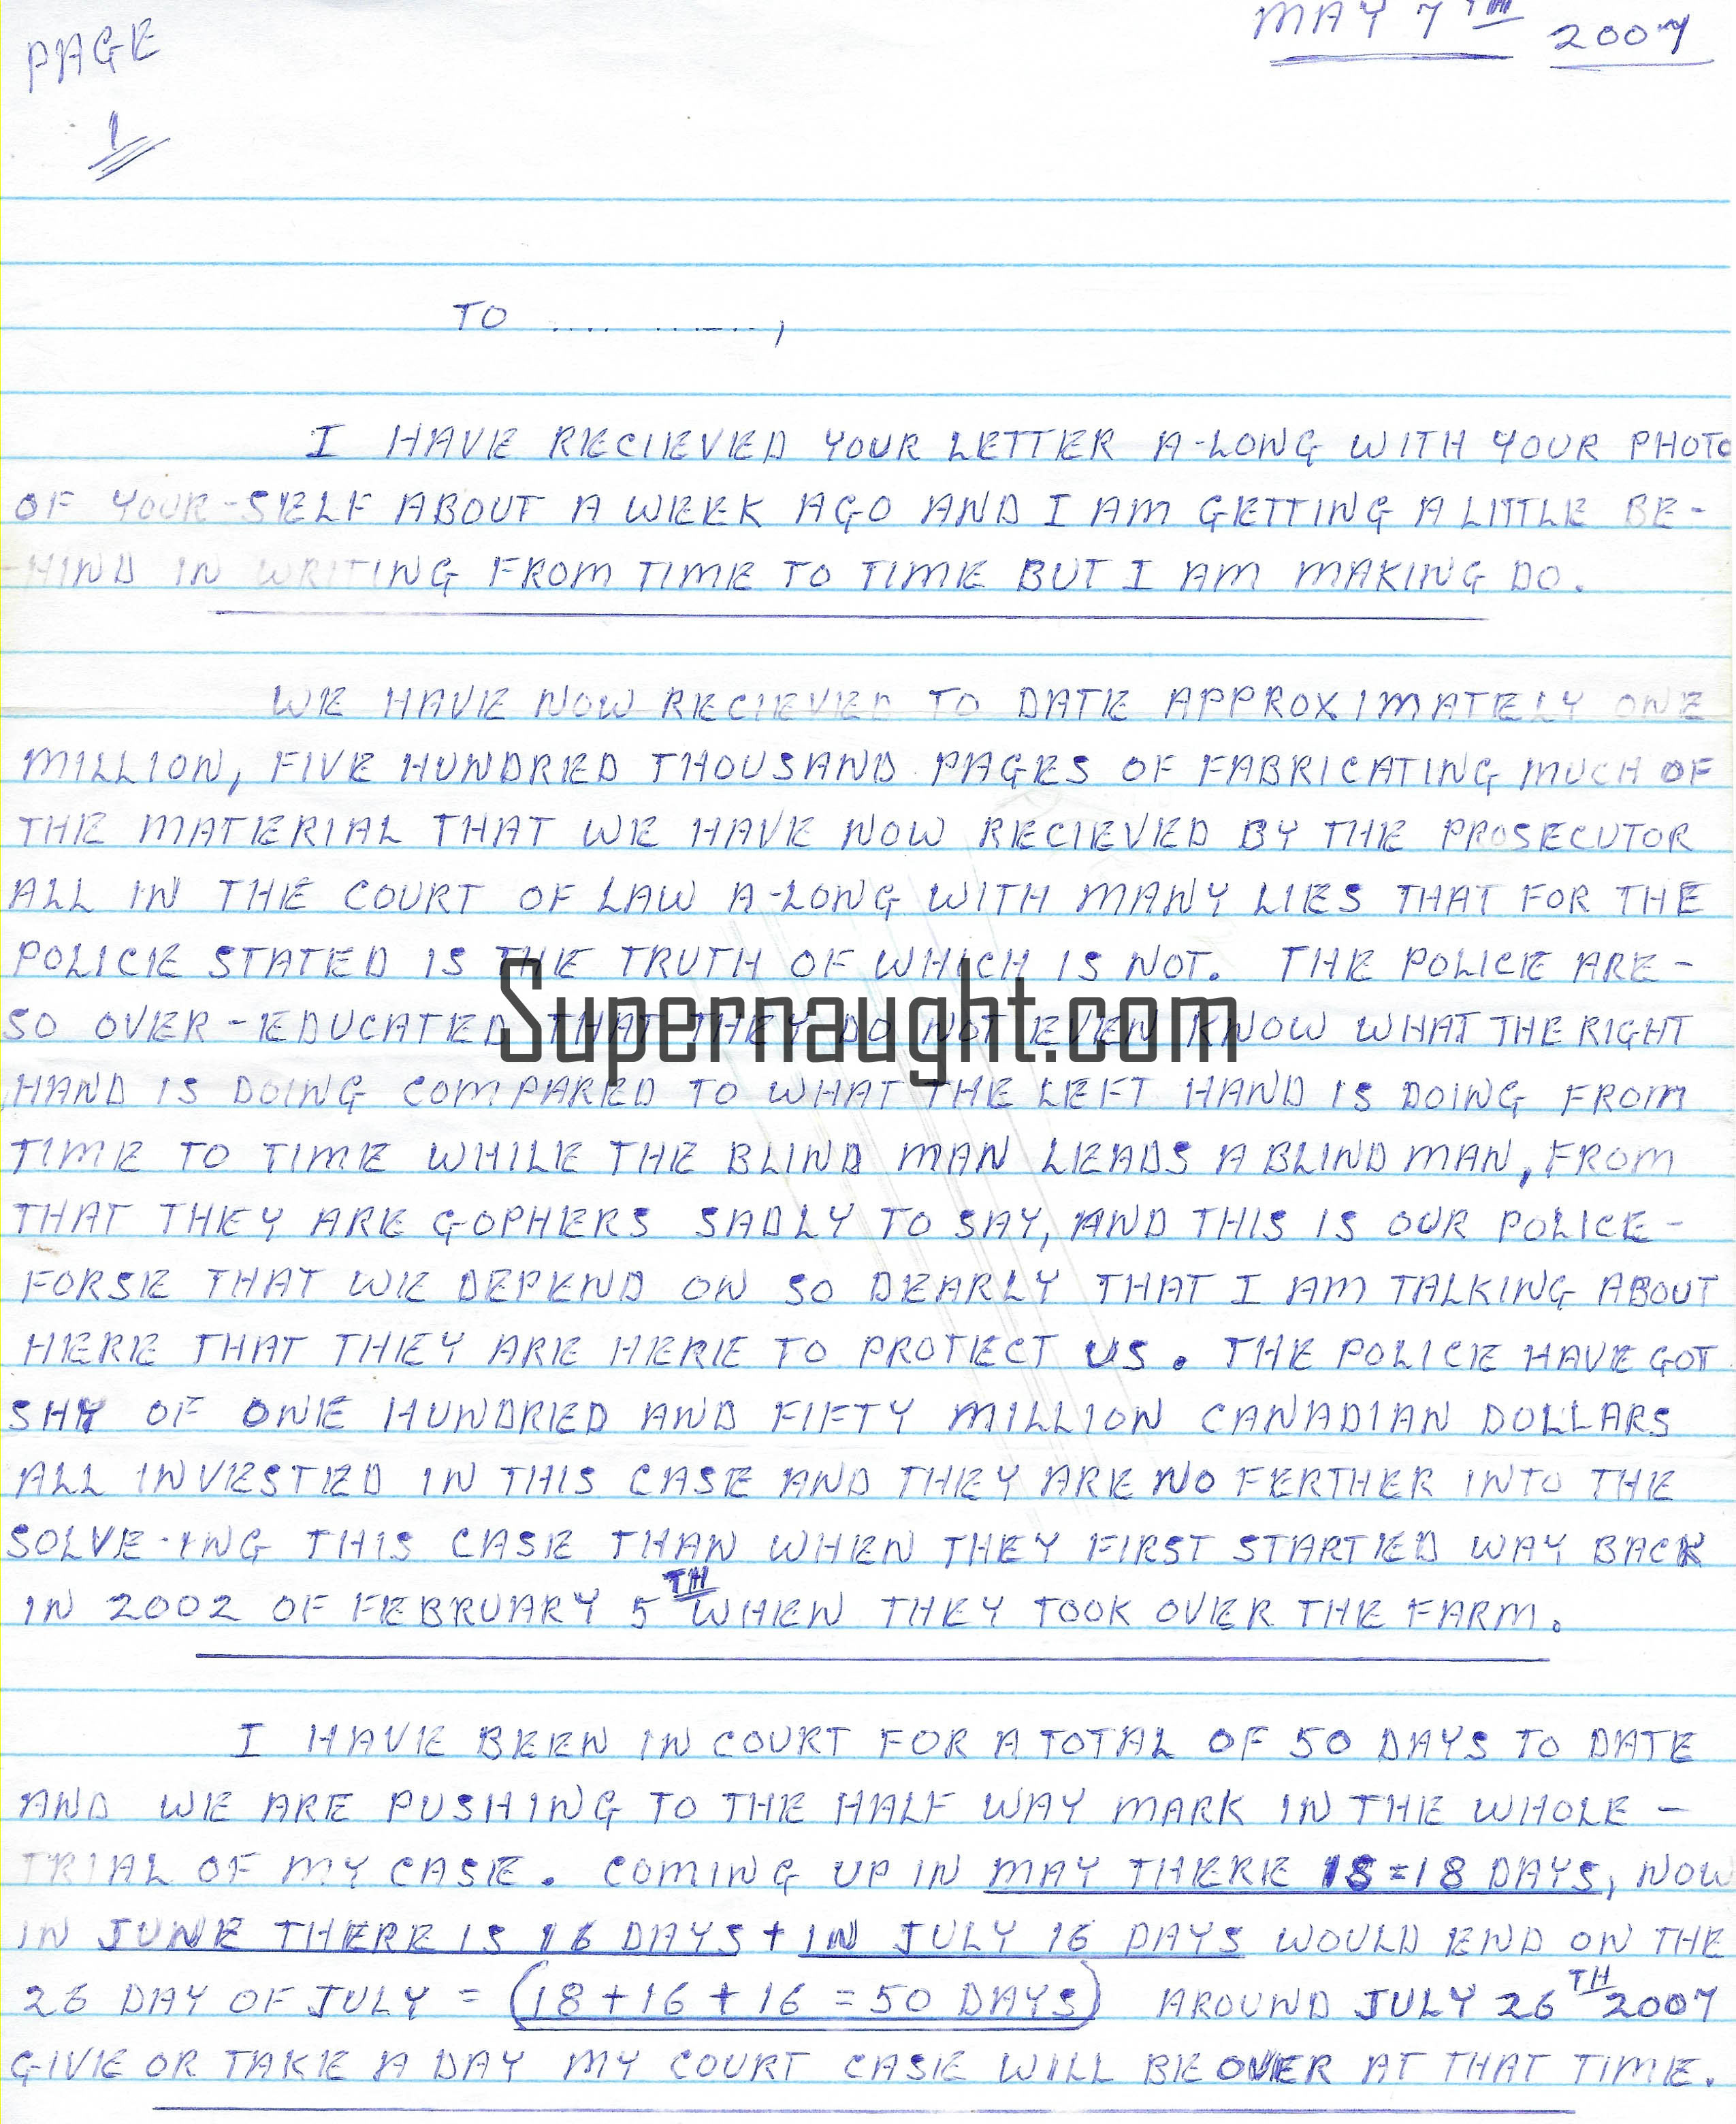 PAGE
1
MAY 7TH 2007
TO
I HAVE RECIEVED YOUR LETTER A-LONG WITH YOUR PHOTO
OF YOUR-SELF ABOUT A WEEK AGO AND I AM GETTING A LITTLE BE-
-HIND IN WRITING FROM TIME TO TIME BUT I AM MAKING DO.
WE HAVE NOW RECIEVED TO DATE APPROXIMATELY ONE
MILLION, FIVE HUNDRED THOUSAND PAGES OF FABRICATING MUCH OF
THE MATERIAL THAT WE HAVE NOW RECIEVED BY THE PROSECUTOR
ALL IN THE COURT OF LAW A-LONG WITH MANY LIES THAT FOR THE
POLICE STATED IS THE TRUTH OF WHICH IS NOT. THE POLICE ARE-
SO OVER-EDUCATED THAT THEY DO NOT EVEN KNOW WHAT THE RIGHT
Supernaught.com
HAND IS DOING COMPARED TO WHAT THE LEFT HAND IS DOING FROM
TIME TO TIME WHILE THE BLIND MAN LEADS A BLIND MAN, FROM
THAT THEY ARE GOPHERS SADLY TO SAY, AND THIS IS OUR POLICE-
FORSE THAT WE DEPEND ON SO DEARLY THAT I AM TALKING ABOUT
HERE THAT THEY ARE HERE TO PROTECT US. THE POLICE HAVE GOT
SHY OF ONE HUNDRED AND FIFTY MILLION CANADIAN DOLLARS
ALL INVESTED IN THIS CASE AND THEY ARE NO FERTHER INTO THE
SOLVE-ING THIS CASE THAN WHEN THEY FIRST STARTED WAY BACK
IN 2002 OF FEBRUARY 5TH WHEN THEY TOOK OVER THE FARM.
I HAVE BEEN IN COURT FOR A TOTAL OF 50 DAYS TO DATE
AND WE ARE PUSHING TO THE HALF WAY MARK IN THE WHOLE-
TRIAL OF MY CASE. COMING UP IN MAY THERE IS=18 DAYS, NOW
IN JUNE THERE IS 16 DAYS + IN JULY 16 DAYS WOULD END ON THE
26 DAY OF JULY = (18+16+16=50 DAYS) AROUND JULY 26TH 2007
GIVE OR TAKE A DAY MY COURT CASE WILL BE OVER AT THAT TIME.